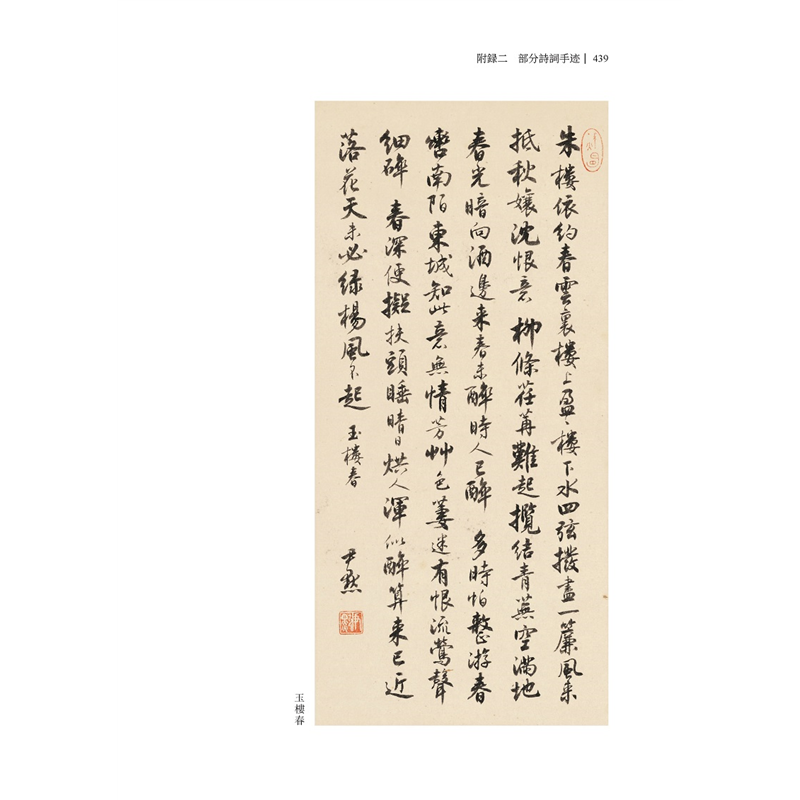 附録二　部分詩詞手迹 | 439
朱樓依約春雲裏樓上盈〻樓下水四弦撥盡一簾風未
抵秋孃沈恨意 柳條荏苒難起攬結青蕪空滿地
春光暗向酒邊來春未醉時人已醉 多時怕整游春
轡南陌東城知此意無情芳艸色萋迷有恨流鶯聲
細碎 春深便擬扶頭睡晴日烘人渾似醉算來已近
落花天未必緑楊風不起 玉樓春
尹默
玉樓春